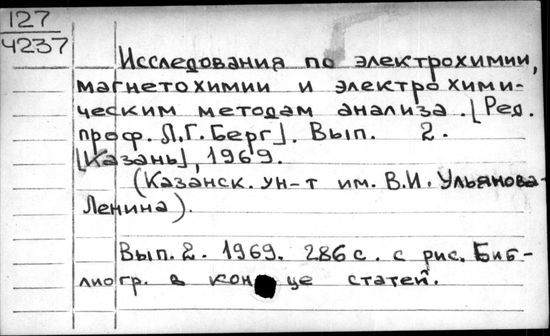 127
4237
Исследования по электрохимии,
магнетохимии и электрохими-
ческим методам анализа. [Ред.
проф. Л.Г. Берг]. Вып. 2.
[Казань], 1969.
(Казанск. ун-т им. В.И. Ульянова-
Ленина).
Вып. 2. 1969. 286 с. с рис. Биб-
лиогр. в конце статей.